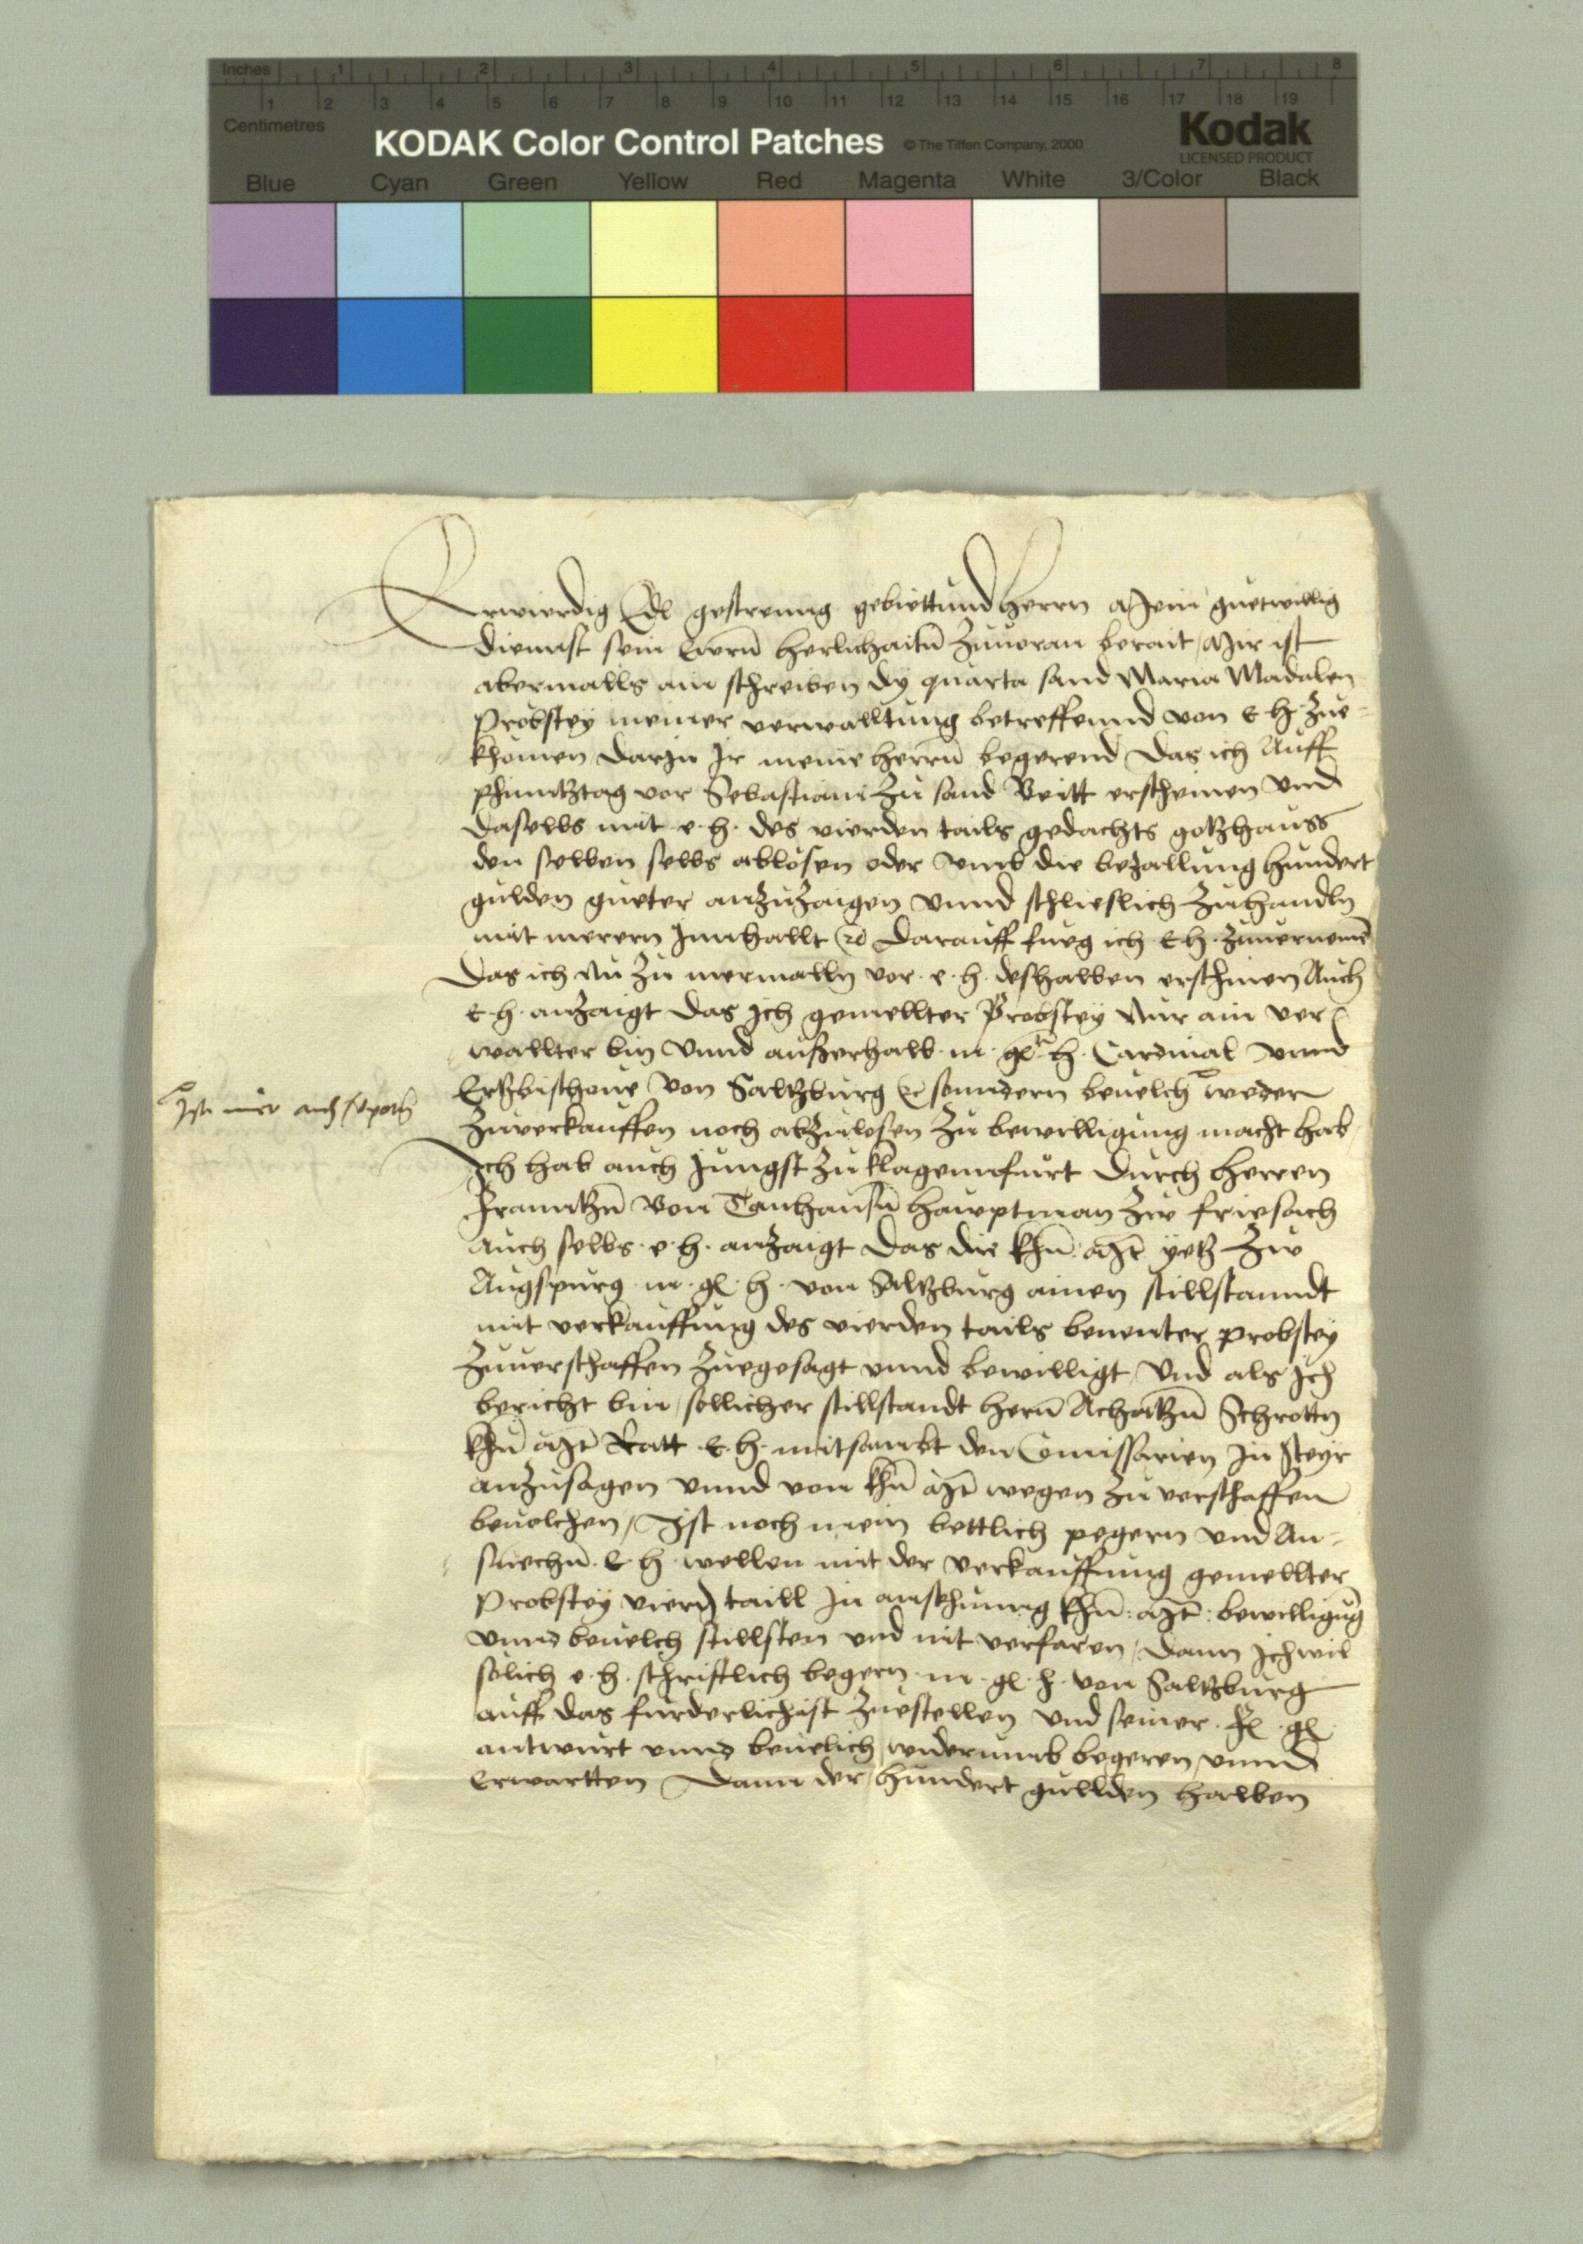 Inches 1 2 3 4 5 6 7 8
1 2 3 4 5 6 7 8 9 10 11 12 13 14 15 16 17 18 19
Centimetres
KODAK Color Control Patches © The Tiffen Company, 2000
Kodak
LICENSED PRODUCT
Blue Cyan Green Yellow Red Magenta White 3/Color Black
Erwierdig Edl gestrenng gebiettund herrn Mein guetwillig
diennst sein Ewrn̄ herlichaitn̄ zuuoran berait, Mir ist
abermalls ain schreiben dy quarta sand Maria Madalen
Probstey meiner verwalltung betreffennd von E h zue-
khomen Darjn Jr meine herrn̄ begerend Das ich Auff
phinntztag vor Sebastiani zu sand Veitt erscheinen vnd
daselbs mit e. h. des vierden tails gedachts gotzhauss
den selben selbs ablosen oder vmb die bezallung hundert
gulden gueter anzuzaigen vnnd schlieslich zuhandln
mit merern Jnnhallt Darauff fueg ich E h. zuuernemē
Das ich nu zu mermalln vor. e. h. deshalben erschinen Auch
E. h. anzaigt Das Jch gemellter Probstey Nur ain ver
wallter bin vnnd außerhalb m. h. Cardinal vnnd
Ertzbischoue von Saltzburg sonndern beuelch weder
Jst mir auch
zuuerkauffen noch abzulosen zu bewilligung macht hab
Jch hab auch Jungst zu klagennfurt durch herren
Franntzn̄ von Tanhausn̄ hawptman zw friesach
Auch selbs. e. h. anzaigt Das die khn̄. Mt̄ yetz zw
Augspurg m. gl. h. von Saltzburg ainen stillstanndt
mit verkauffung des vierden tails benenter probstey
zuuerschaffen zuegesagt vnnd bewilligt Vnd als Jch
bericht bin, sollicher stillstandt hern̄ Achatzn̄ Schrottn
khn̄ Mt̄ Ratt E. h. mitsambt den Comissarien Jn Steyr
anzusagen vnnd von khn̄ Mt̄ wegen zu verschaffen
beuolchen, Jst noch mein bettlich pegern vnd An-
suechn̄. E h wellen mit der verkauffung gemellter
Probstey vierdn taill Jn ansehunng khn̄: Mt̄: bewilligūg
vnnd beuelch stillsten vnd nit verfaren, Dann Jch wil
solich e. h. schrifftlich begern m. gl. h. von Saltzburg
auff das furderlichist zuestellen vnd seiner. fl. gl.
antwurt vnnd beuelich widerumb begeren vnnd
Erwartten Dann der hundert gullden halben